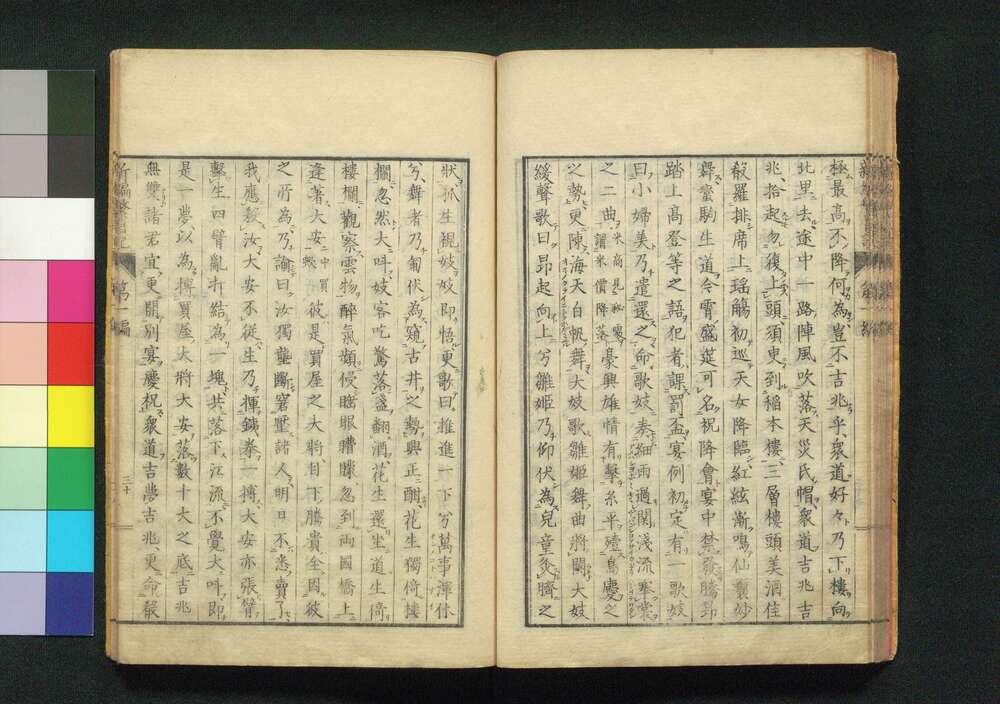 極最高不降何為豈不吉兆乎衆道好々乃下樓向
北里去途中一路陣風吹落天災氏帽衆道吉兆吉
兆拾起勿復上頭須臾到稲本樓三層樓頭美酒佳
殽羅排席上瑤觴初巡天女降臨紅絃漸鳴仙襲妙
舞蛮駒生道今宵盛莚可名祝降會宴中禁發騰昂
踏上高登等之語犯者課罰盃宴例初定有一歌妓
曰小婦美乃遣還之命歌妓奏細雨過関淺流寒裳
之二曲豪興雄情有擊糸平殪鳥慶之
之勢更陳海天白帆舞大妓歌雛姫舞曲將闌大妓
緩聲歌曰昴起向上兮雛姫乃仰伏為兒童灸臍之
狀孤生視妓妓即悟更歌曰推進一下兮萬事渾休
兮舞者乃匍伏為窺古井之勢興正酣花生獨倚樓
欄忽然大呌妓客吃驚落盞翻酒花生還坐道生倚
樓欄觀察雲物醉氣頻侵睡眼朦朧忽到兩國橋上
逢著大安中買一蝦彼是買屋之大將目下騰貴全因彼
之所為乃諭曰汝獨壟斷窘墾諸人明日不悉賣了
我應殺汝大安不從生乃揮鐵拳一搏大安亦張臂
毄生四臂亂打結為一塊共落下江流不覺大呌即
是一夢以為搏買屋大將大安落數十丈之底吉兆
無雙諸君宜更開別宴慶祝衆道吉夢吉兆更命殽
新編 第一編
三十